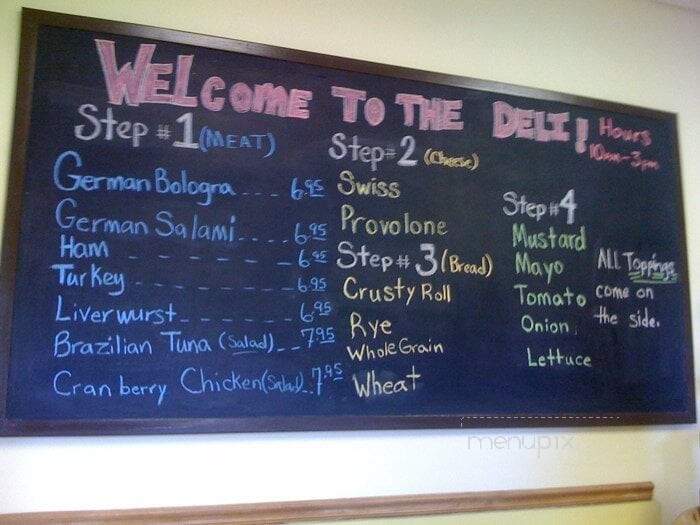 WELCOME TO THE DELI!
Hours
10am-3pm
Step #1 (MEAT)
German Bologna ---- 6.95
German Salami ---- 6.95
Ham - - - - - - 6.95
Turkey - - - - - - 6.95
Liverwurst - - - - - - 6.95
Brazilian Tuna (Salad) -- 7.95
Cranberry Chicken (Salad) -- 7.95
Step #2 (Cheese)
Swiss
Provolone
Step #3 (Bread)
Crusty Roll
Rye
Whole Grain
Wheat
Step #4
Mustard
Mayo
Tomato
Onion
Lettuce
ALL Toppings
come on
the side.
menupix